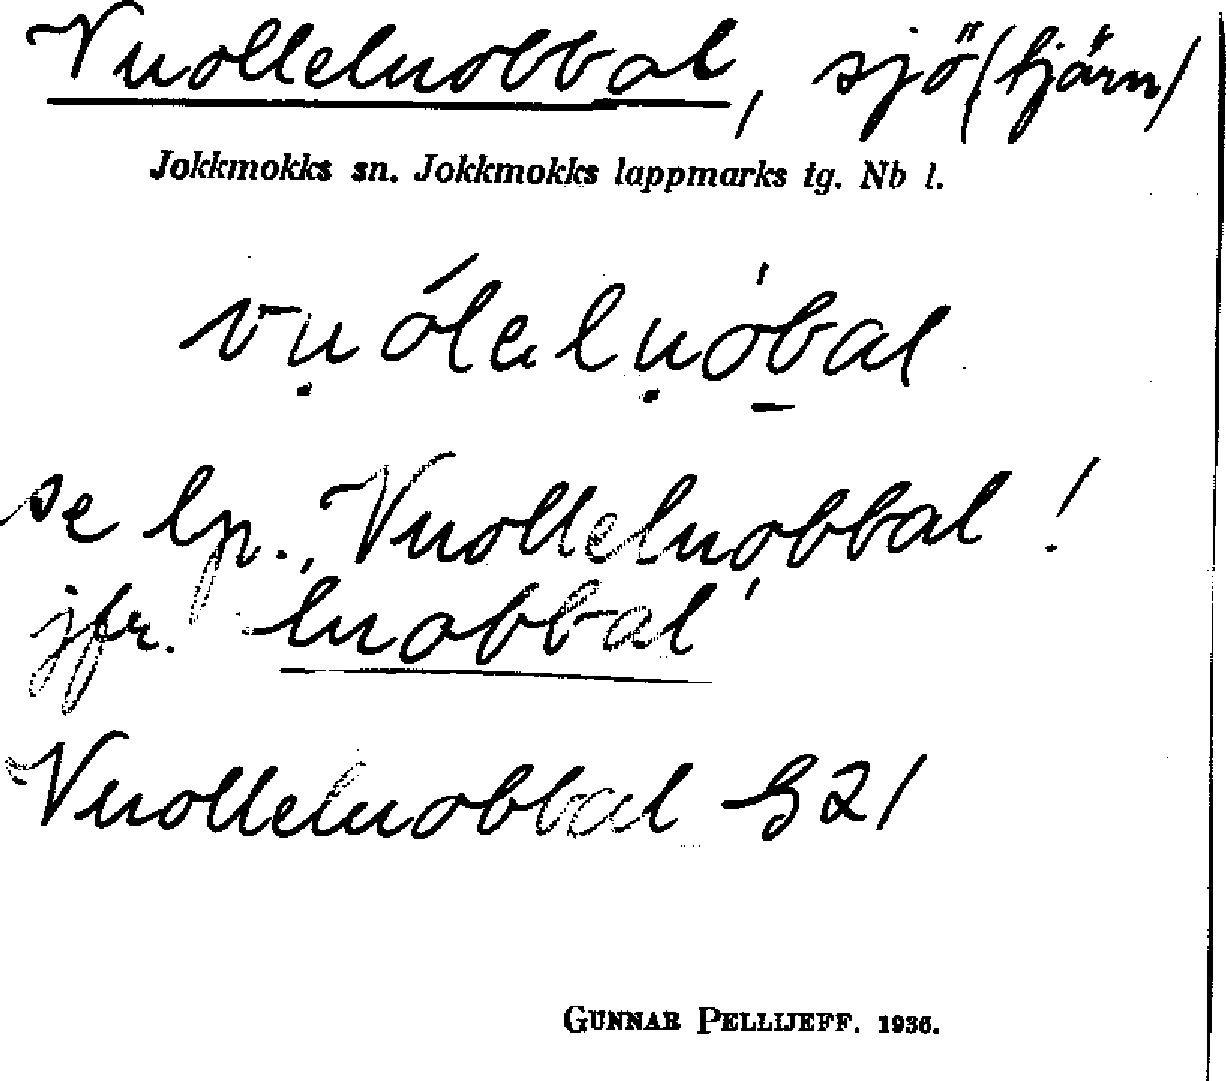 Vuollelnobbal, sjö (tjärn)
Jokkmokks sn. Jokkmokks lappmarks tg. Nb l.
vụólelụo̱̍bal
se lp. Vuolleluobbal!
jfr. luobbal
Vuolleluobbal
GUNNAR PELLIJEFF. 1936.